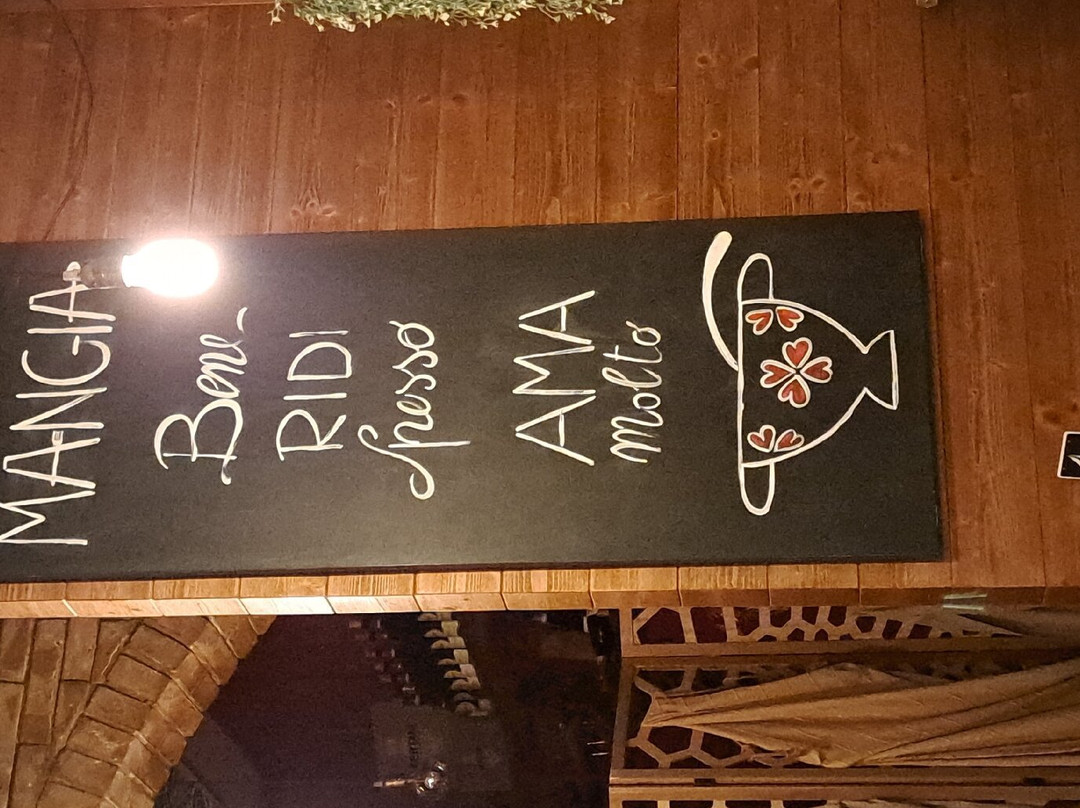 MANGIA
Bene
RIDI
spesso
AMA
molto